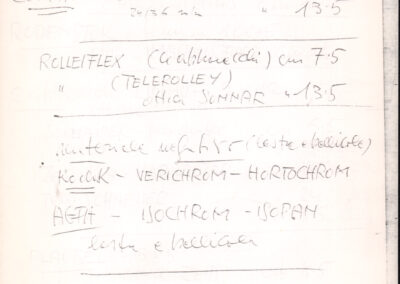 24/36 m/m " 13.5
ROLLEIFLEX (Grandangolo) cm 7.5
" (TELEROLLEY)
ottica SONNAR " 13.5
materiale negativo (lastre e pellicole)
KodaK - VERICHROM - HORTOCHROM
AGFA - ISOCHROM - ISOPAN
lastre e pellicole